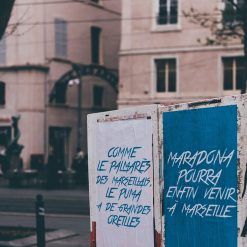 COMME
LE PALMARÈS
DES MARSEILLAIS,
LE PUMA
A DE GRANDES
OREILLES
MARADONA
POURRA
ENFIN VENIR
A MARSEILLE